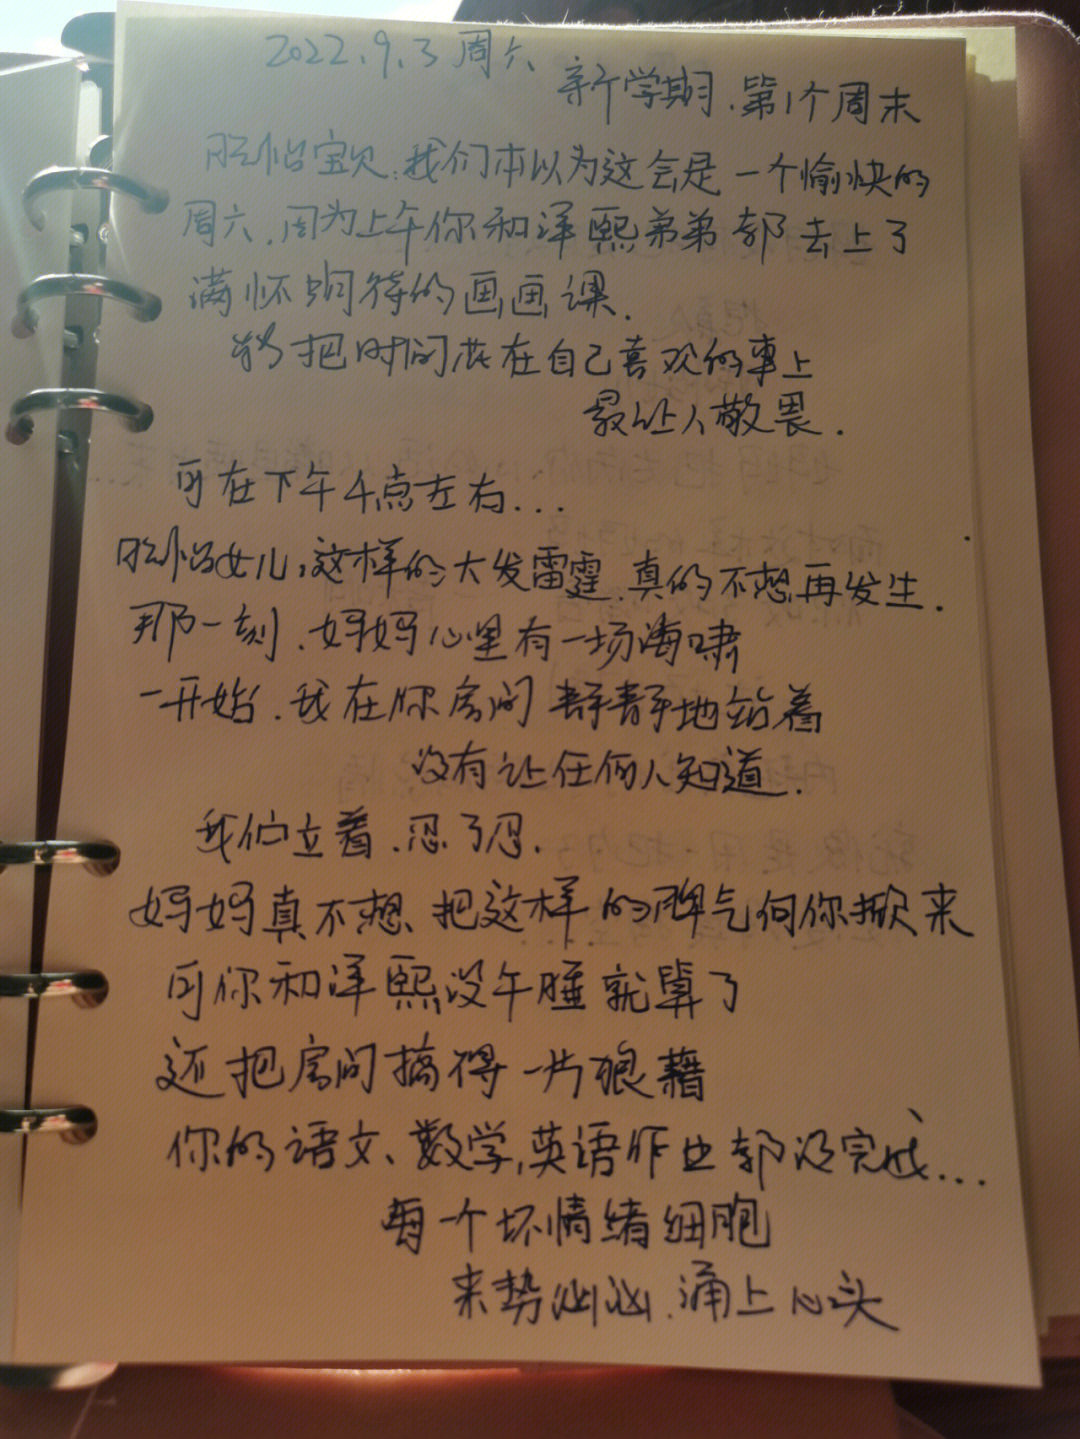 2022.9.3 周六
新学期.第1个周末
怡宝贝,我们本以为这会是一个愉快的
周六.因为上午你和泽熙弟弟都去上了
满怀期待的画画课.
能把时间花在自己喜欢的事上
最让人敬畏.
可在下午4点左右...
怡女儿,这样的大发雷霆.真的不想再发生.
那一刻.妈妈心里有一场海啸
一开始.我在你房间静静地站着
没有让任何人知道.
我们立着.忍了忍.
妈妈真不想把这样的脾气向你掀来
可你和泽熙没午睡就算了
还把房间搞得一片狼藉
你的语文、数学,英语作业都没完成...
每一个坏情绪细胞
来势汹汹.涌上心头